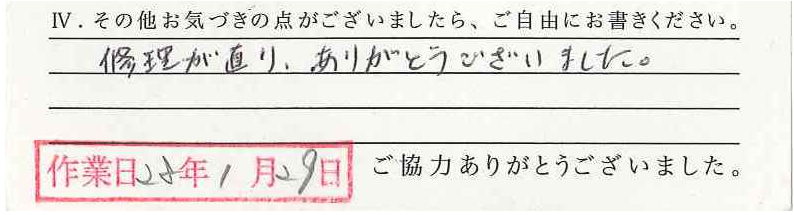 Ⅳ．その他お気づきの点がございましたら、ご自由にお書きください。
修理が直り、ありがとうございました。
作業日28年1月29日
ご協力ありがとうございました。